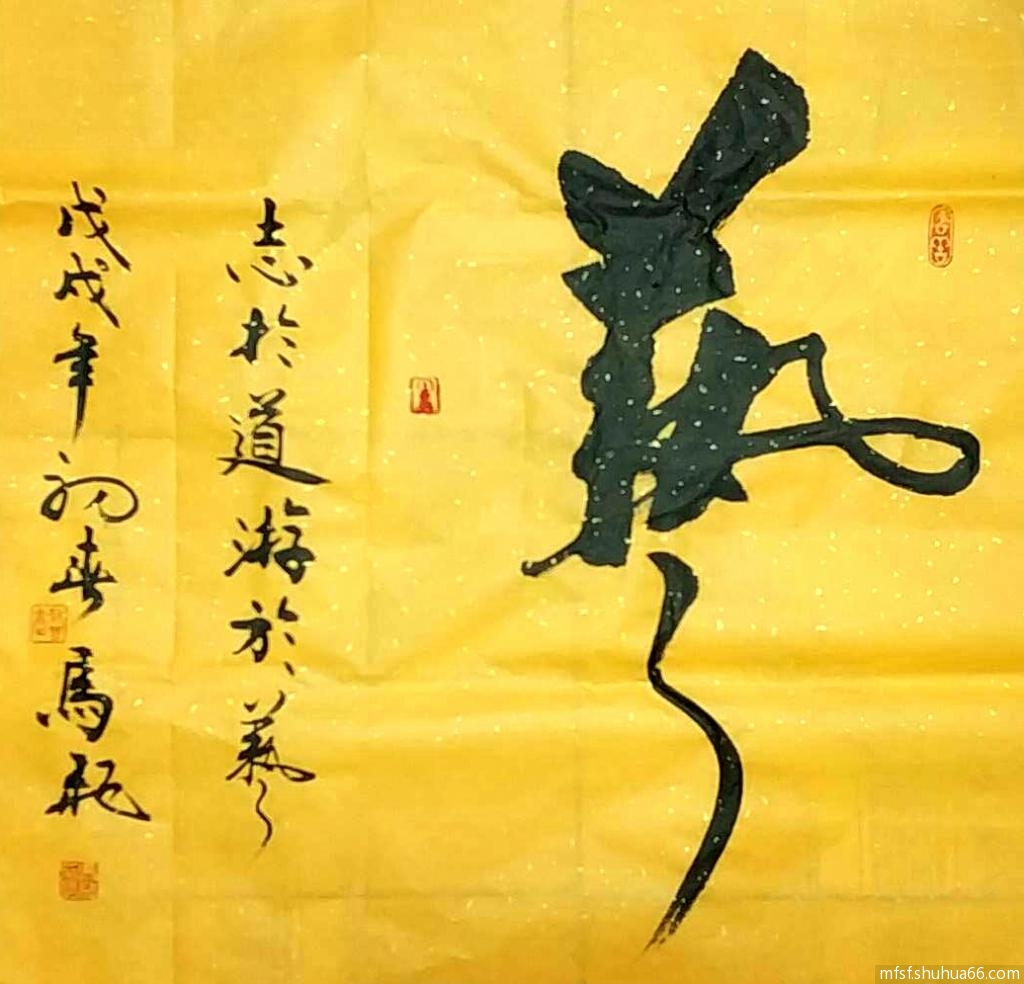 藝
志於道游於藝
戊戌年初春馬航
mfsf.shuhua66.com